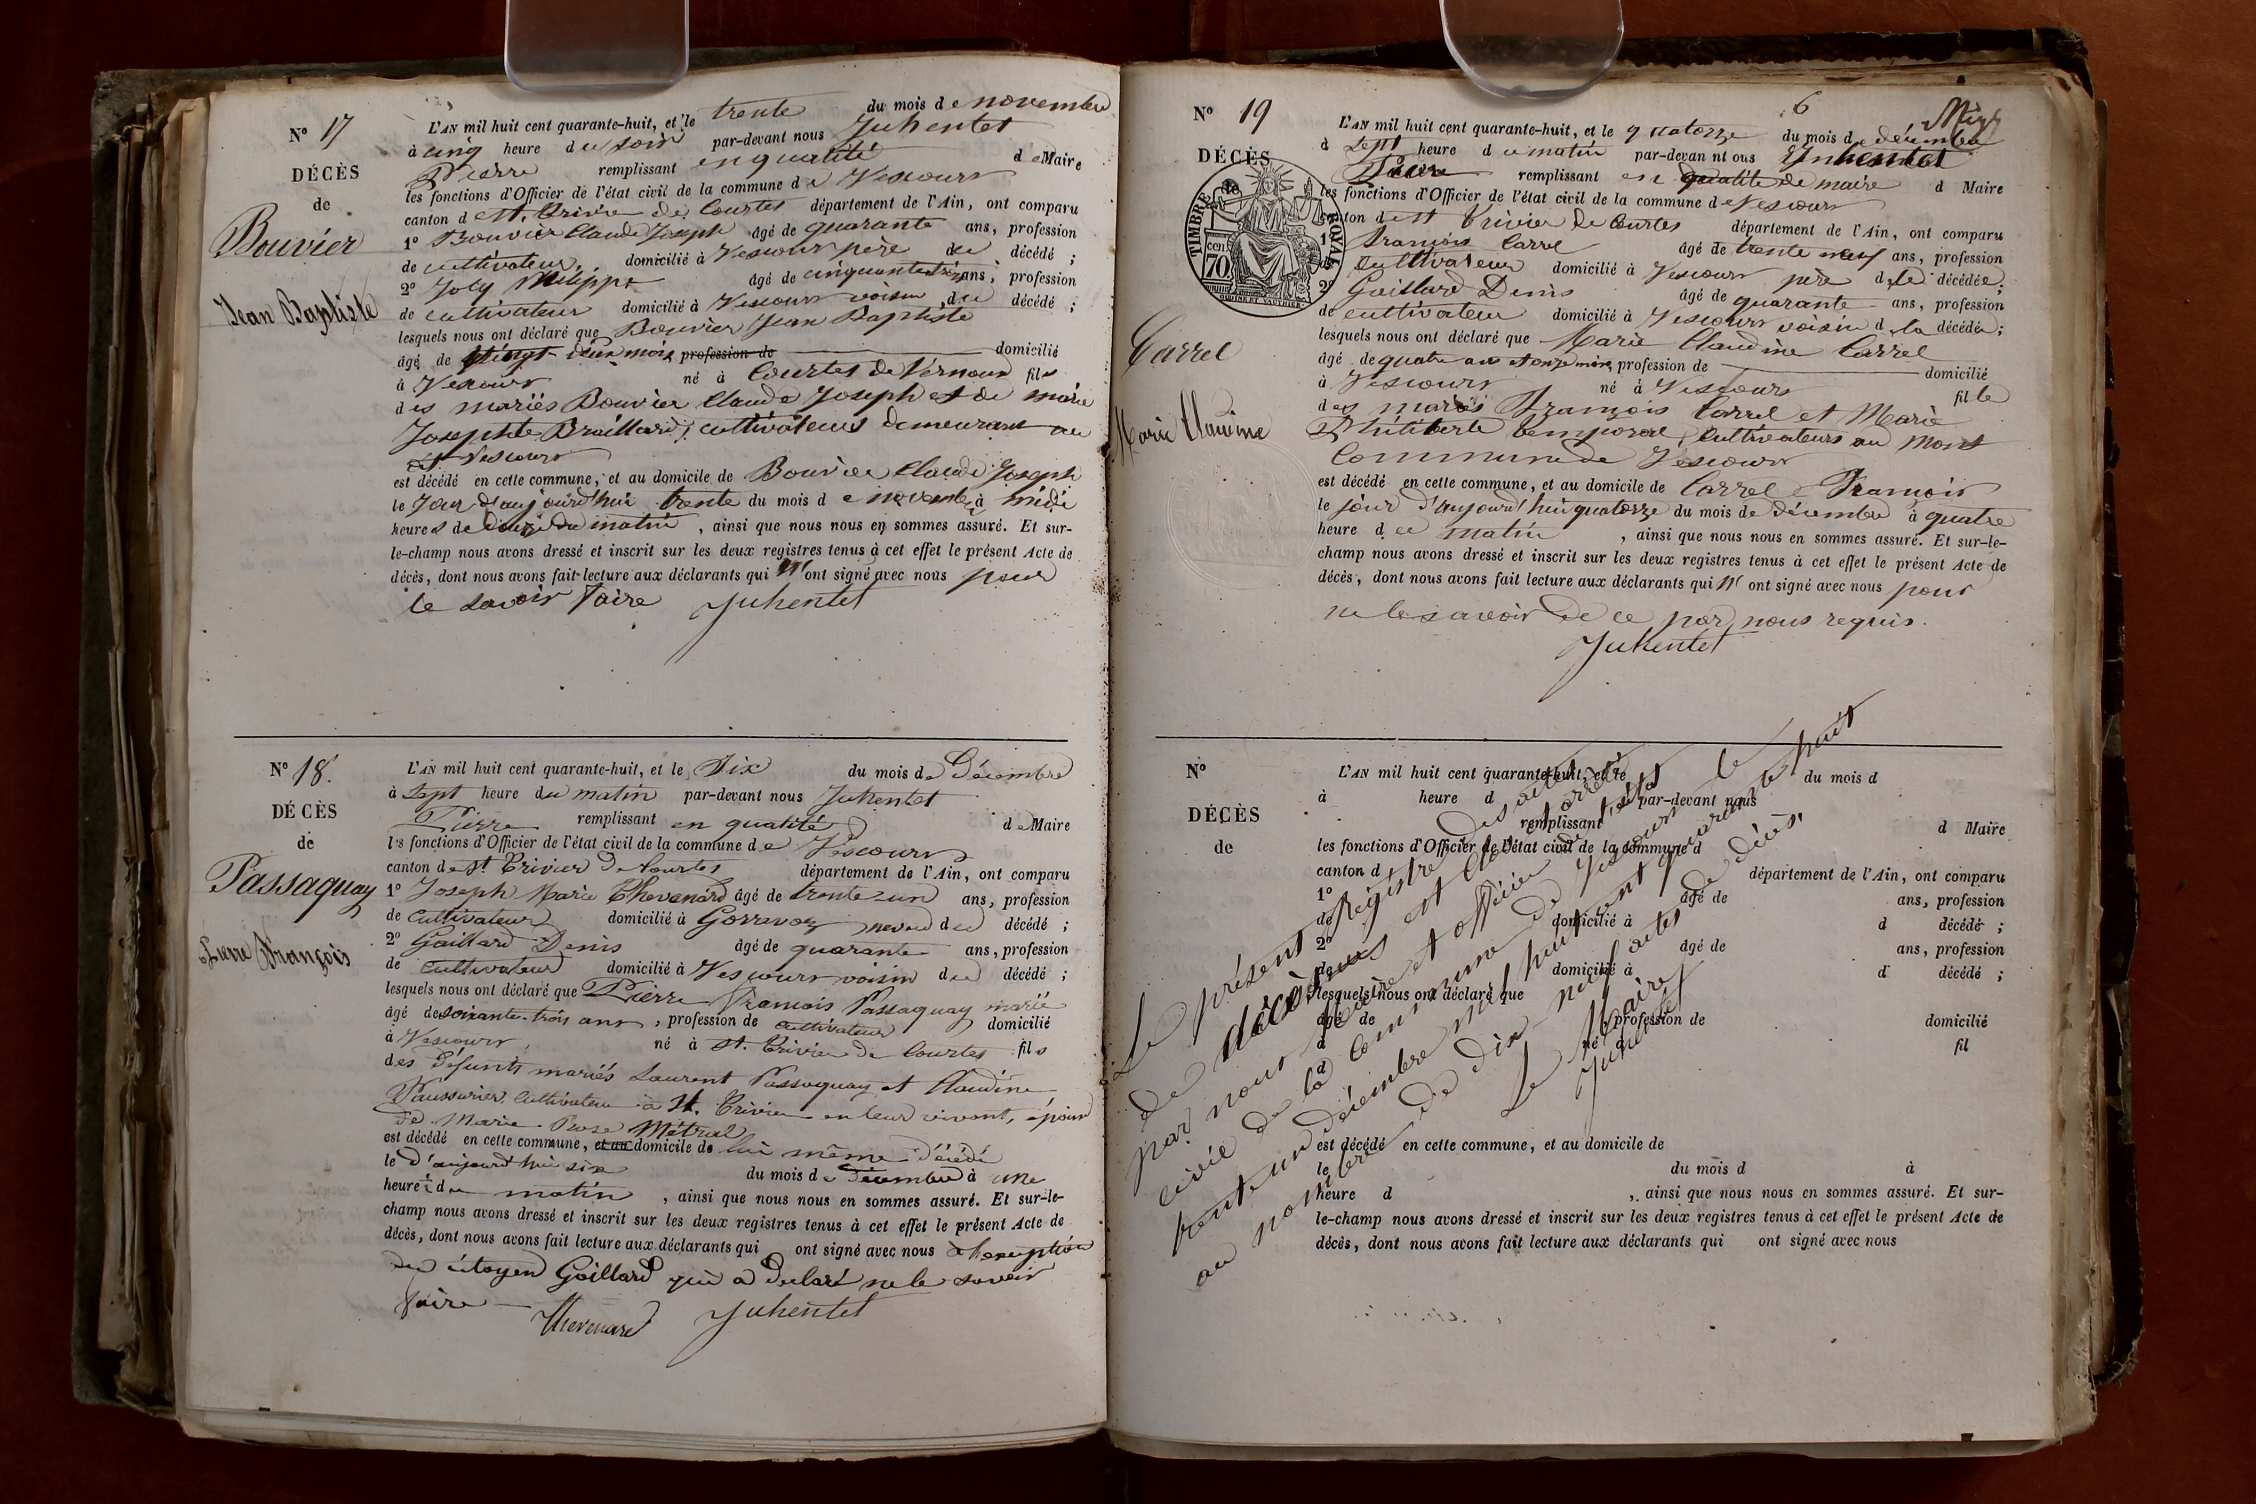 N° 17
DÉCÈS
de
Bouvier
Jean Baptiste
L'AN mil huit cent quarante-huit, et le trente du mois de novembre
à cinq heure du soir par-devant nous Juhentet
Pierre remplissant en qualité de Maire
les fonctions d'Officier de l'état civil de la commune de Vescours
canton de St. Trivier de Courtes département de l'Ain, ont comparu
1° Bouvier Claude Joseph âgé de quarante ans, profession
de cultivateur, domicilié à Vescours père du décédé ;
2° Joly Philippe âgé de cinquante six ans, profession
de cultivateur domicilié à Vescours voisin du décédé ;
lesquels nous ont déclaré que Bouvier Jean Baptiste
âgé de vingt deux mois profession de domicilié
à Vescours né à Courtes de Vernoux fils
des mariés Bouvier Claude Joseph et de marie
Josephte Braillard, cultivateurs demeurant au
dit Vescours
est décédé en cette commune, et au domicile de Bouvier Claude Joseph
le Jour d'aujourd'hui trente du mois de novembre à midi
heures de douze du matin, ainsi que nous nous en sommes assuré. Et sur-
le-champ nous avons dressé et inscrit sur les deux registres tenus à cet effet le présent Acte de
décès, dont nous avons fait lecture aux déclarants qui n'ont signé avec nous pour
le savoir faire Juhentet
N° 18.
DÉCÈS
de
Passaquay
Pierre François
L'AN mil huit cent quarante-huit, et le Six du mois de Décembre
à Sept heure du matin par-devant nous Juhentet
Pierre remplissant en qualité de Maire
les fonctions d'Officier de l'état civil de la commune de Vescours
canton de St Trivier de Courtes département de l'Ain, ont comparu
1° Joseph Marie Thevenard âgé de trente-un ans, profession
de cultivateur domicilié à Gorrevoz neveu du décédé ;
2° Gaillard Denis âgé de quarante ans, profession
de cultivateur domicilié à Vescours voisin du décédé ;
lesquels nous ont déclaré que Pierre Francois Passaquay marié
âgé de soixante-trois ans, profession de cultivateur domicilié
à Vescours, né à St. Trivier de Courtes fils
des défunts mariés Laurent Passaquay et Claudine
cultivateurs à St. Trivier en leur vivant, époux
de Marie Rose Métral
est décédé en cette commune, et au domicile de lui même décédé
le d'aujourd'hui six du mois de Décembre à une
heure du matin, ainsi que nous nous en sommes assuré. Et sur-le-
champ nous avons dressé et inscrit sur les deux registres tenus à cet effet le présent Acte de
décès, dont nous avons fait lecture aux déclarants qui ont signé avec nous à l'exception
du citoyen Gaillard qui a declaré ne le savoir
faire Thevenard Juhentet
6
N° 19
DÉCÈS
de
TIMBRE ROYAL
cen. 70
Carrel
Marie Claudine
L'AN mil huit cent quarante-huit, et le quatorze du mois de décembre
à Sept heure du matin par-devant nous Juhentet
Pierre remplissant en qualité de maire d Maire
les fonctions d'Officier de l'état civil de la commune de Vescours
canton de St Trivier de Courtes département de l'Ain, ont comparu
1° François Carrel âgé de trente neuf ans, profession
cultivateur domicilié à Vescours père de la décédée ;
2° Gaillard Denis âgé de quarante ans, profession
de cultivateur domicilié à Vescours voisin de la décédée ;
lesquels nous ont déclaré que Marie Claudine Carrel
âgé de quatre ans et onze mois, profession de domicilié
à Vescours né à Vescours fille
des mariés François Carrel et Marie
Philiberte Temporal, cultivateurs au Mont
Commune de Vescours
est décédé en cette commune, et au domicile de Carrel François
le jour d'aujourd'hui quatorze du mois de décembre à quatre
heure du matin, ainsi que nous nous en sommes assuré. Et sur-le-
champ nous avons dressé et inscrit sur les deux registres tenus à cet effet le présent Acte de
décès, dont nous avons fait lecture aux déclarants qui n'ont signé avec nous pour
ne le savoir de ce par nous requis.
Juhentet
N°
DÉCÈS
de
L'AN mil huit cent quarante-huit, et le du mois d
à heure d par-devant nous
remplissant d Maire
les fonctions d'Officier de l'état civil de la commune d
canton d département de l'Ain, ont comparu
1° âgé de ans, profession
de domicilié à d décédé ;
2° âgé de ans, profession
de domicilié à d décédé ;
lesquels nous ont déclaré que
âgé de , profession de domicilié
à né à fil
d
est décédé en cette commune, et au domicile de
le du mois d à
heure d , ainsi que nous nous en sommes assuré. Et sur-
le-champ nous avons dressé et inscrit sur les deux registres tenus à cet effet le présent Acte de
décès, dont nous avons fait lecture aux déclarants qui ont signé avec nous
Le présent Registre des actes
de décès a été clos et arrêté
par nous Maire et officier de l'état
civil de la commune de Vescours le
trente un décembre mil huit cent quarante huit
au nombre de dix-neuf actes de décès.
Le Maire
Juhentet